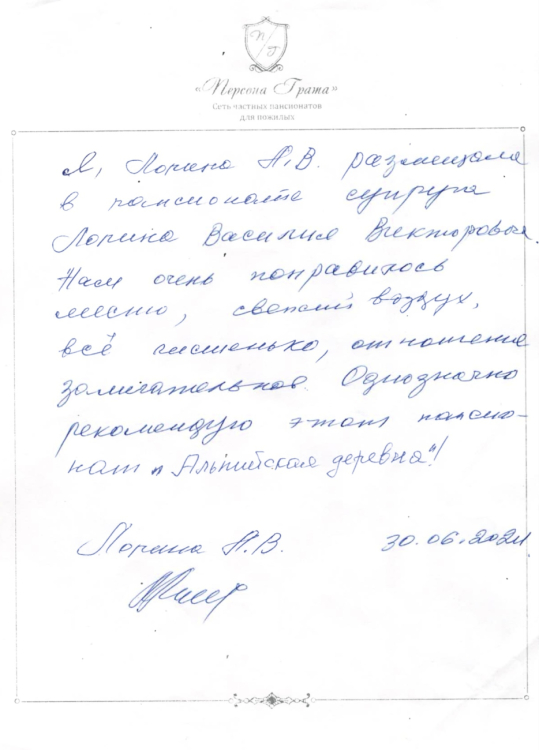 П Г
«Персона Грата»
Сеть частных пансионатов
для пожилых
Я, Лопина Н.В. размещала
в пансионате супруга
Лопина Василия Викторовича
Нам очень понравилось
место, свежий воздух,
всё чистенько, отношение
замечательное. Однозначно
рекомендую этот пансио-
нат „Альпийская деревня"!
Лопина Н.В. 30.06.2021